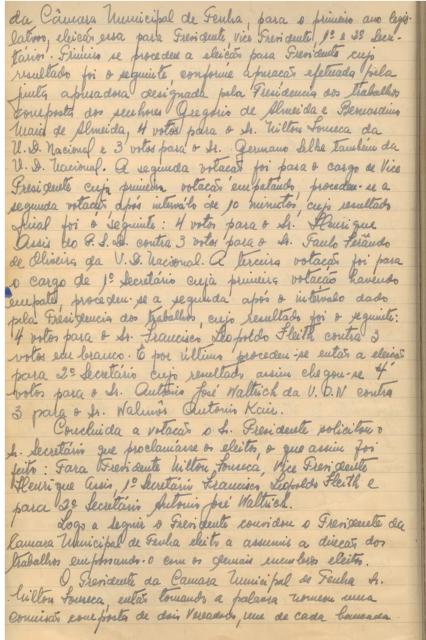 da Câmara Municipal de Penha, para o primeiro ano legis-
lativo, eleição essa para Presidente Vice Presidente, 1º e 2º Secre-
tários. Primeiro se procedeu a eleição para Presidente cujo
resultado foi o seguinte, conforme apuração efetuada pela
junta apuradora designada pela Presidencia dos trabalhos
composta dos senhores Gregório de Almeida e Bernardino
Maria de Almeida, 4 votos para o Sr. Nilton Fonseca da
U.D. Nacional e 3 votos para o Sr. Germano também da
U.D. Nacional. A segunda votação foi para o cargo de Vice
Presidente cuja primeira votação empatando, procedeu-se a
segunda votação, após intervalo de 10 minutos, cujo resultado
final foi o seguinte: 4 votos para o Sr. Henrique
Assis do P.S.D. contra 3 votos para o Sr. Paulo
de Oliveira da U.D. Nacional. A terceira votação foi para
o cargo de 1º Secretário cuja primeira votação havendo
empate, procedeu-se a segunda após o intervalo dado
pela Presidencia dos trabalhos, cujo resultado foi o seguinte:
4 votos para o Sr. Francisco Leopoldo Fleith contra 3
votos em branco. E por último procedeu-se então a eleição
para 2º Secretário cujo resultado assim chegou-se 4
votos para o Sr. Antonio José Waltrich da U.D.N contra
3 para o Sr. Antonio
Concluida a votação o Sr. Presidente solicitou o
Sr. Secretário que proclamasse os eleitos, o que assim foi
feito: Para Presidente Nilton Fonseca, Vice Presidente
Henrique Assis, 1º Secretário Francisco Leopoldo Fleith e
para 2º Secretário Antonio José Waltrich.
Logo a seguir o Presidente convidou o Presidente da
Camara Municipal de Penha eleito a assumir a direção dos
trabalhos empossando-o com os demais membros eleitos.
O Presidente da Câmara Municipal de Penha Sr.
Nilton Fonseca, então tomando a palavra nomeou uma
comissão composta de dois Vereadores, um de cada bancada